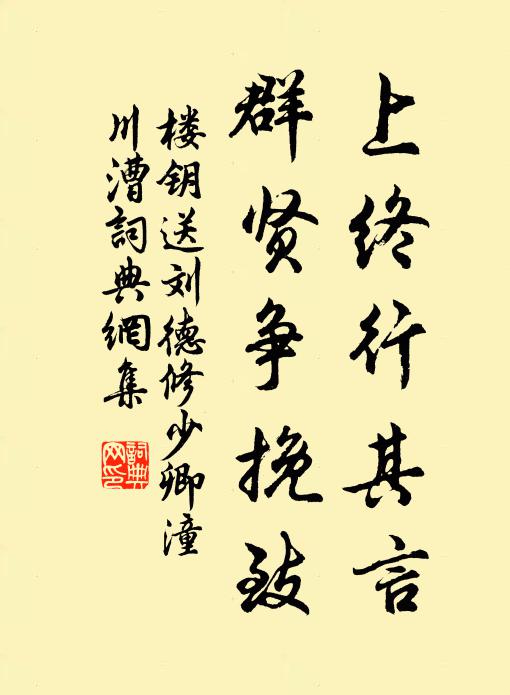 上终行其言
群贤争挽致
楼钥送刘德修少卿潼
川漕詞典網集
詞典網印